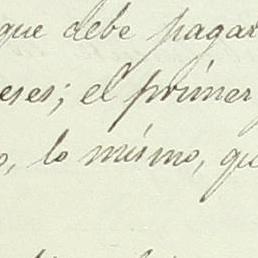 que debe pagar
eses; el primer
o, lo mismo, qu